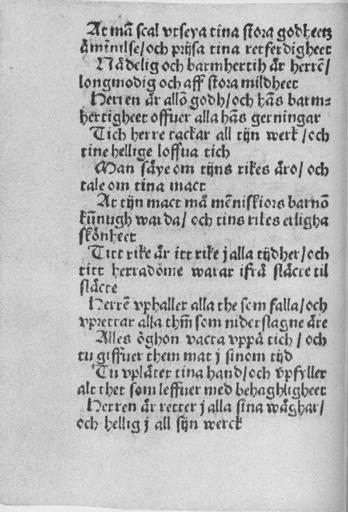 At mā scal vtseya tina stora godheetz
åmīnilse/och prijsa tina retferdigheet
Nådelig och barmhertih är herrē/
longmodig och aff stora mildheet
Herren är allō godh/och hās barm⸗
hertigheet offuer alla hās gerningar
Tich herre tackar all tijn werk/och
tine hellige loffua tich
Man säye om tijns rikes äro/och
tale om tina mact
At tijn mact mā mēniskiors barnō
kūnugh warda/och tins rikes erligha
skönheet
Titt rike är itt rike j alla tijdher/och
titt herradōme warar ifrå släcte til
släcte
Herrē vphaller alla the som falla/och
vprettar alla thm̄ som niderslagne äre
Alles öghon vacta vppå tich/och
tu giffuer them mat j sinom tijd
Tu vplåter tina hand/och vpfyller
alt thet som leffuer med behaghligheet
Herren är retter j alla sina wäghar/
och hellig j all sijn werck